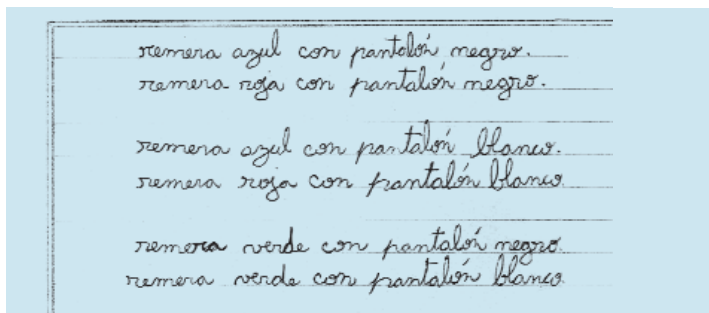 remera azul con pantalón negro.
remera roja con pantalón negro.
remera azul con pantalón blanco.
remera roja con pantalón blanco.
remera verde con pantalón negro.
remera verde con pantalón blanco.